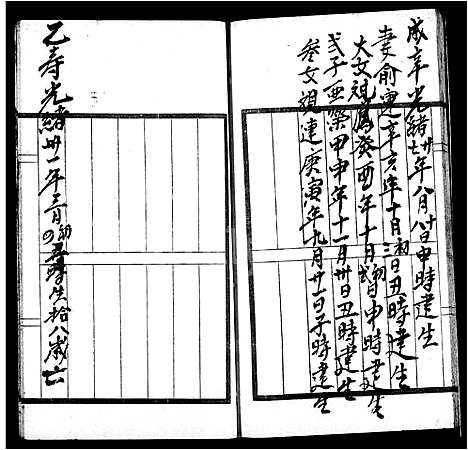 成辛光緒廿七年八月十八日申時建生
妻俞連辛亥年十月初三日丑時建生
大女祖鳳癸酉年十月初弍日申時建生
弍子亜榮甲申年十一月卅日丑時建生
叁女祖連庚寅年九月廿一日子時建生
乙寿光緒卅一年三月初四日時生拾八歲亡